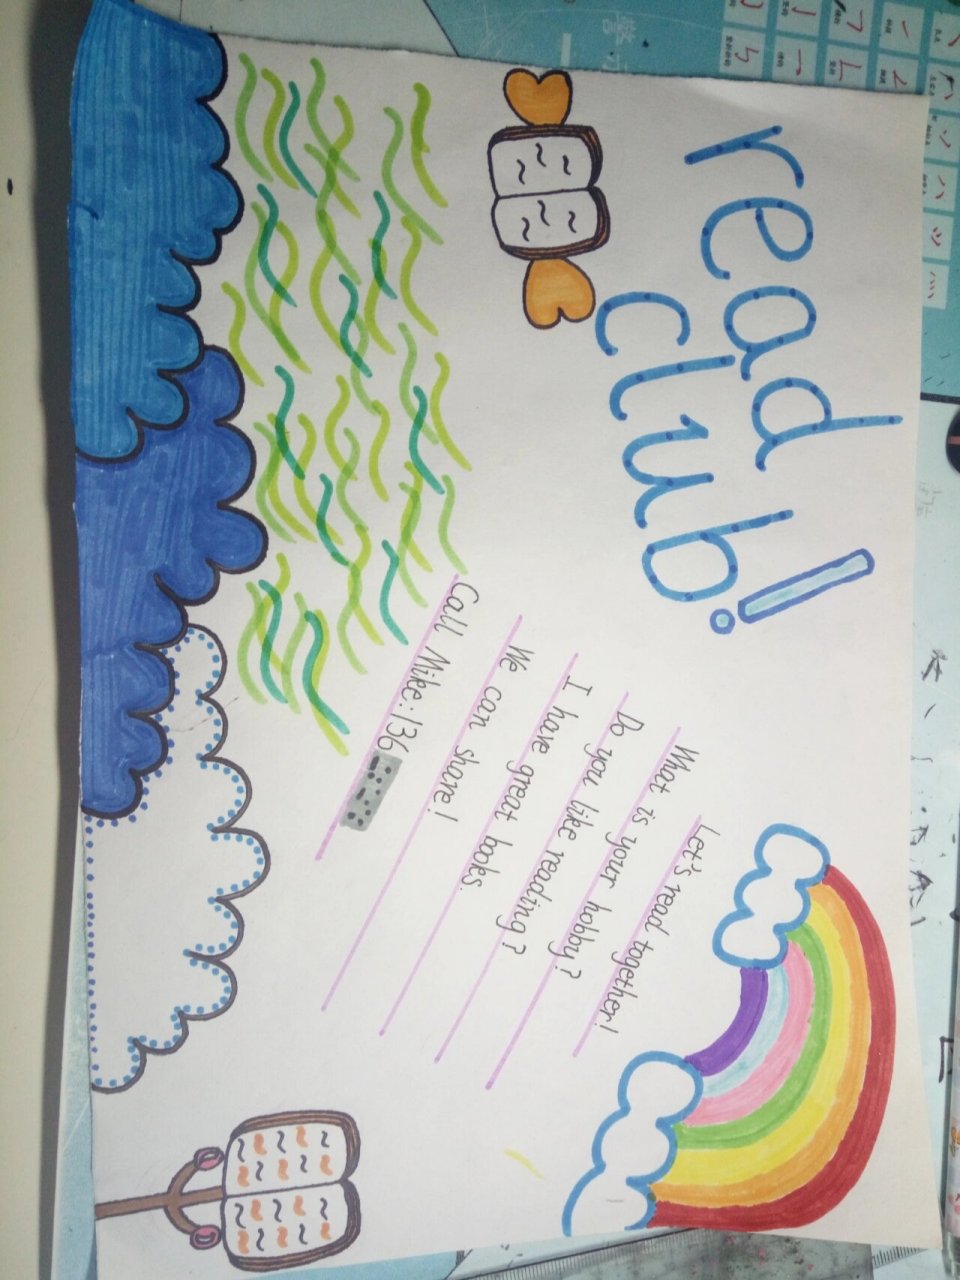 read
club!
Let's read together!
What is your hobby?
Do you like reading?
I have great books.
We can share!
Call Mike: 136